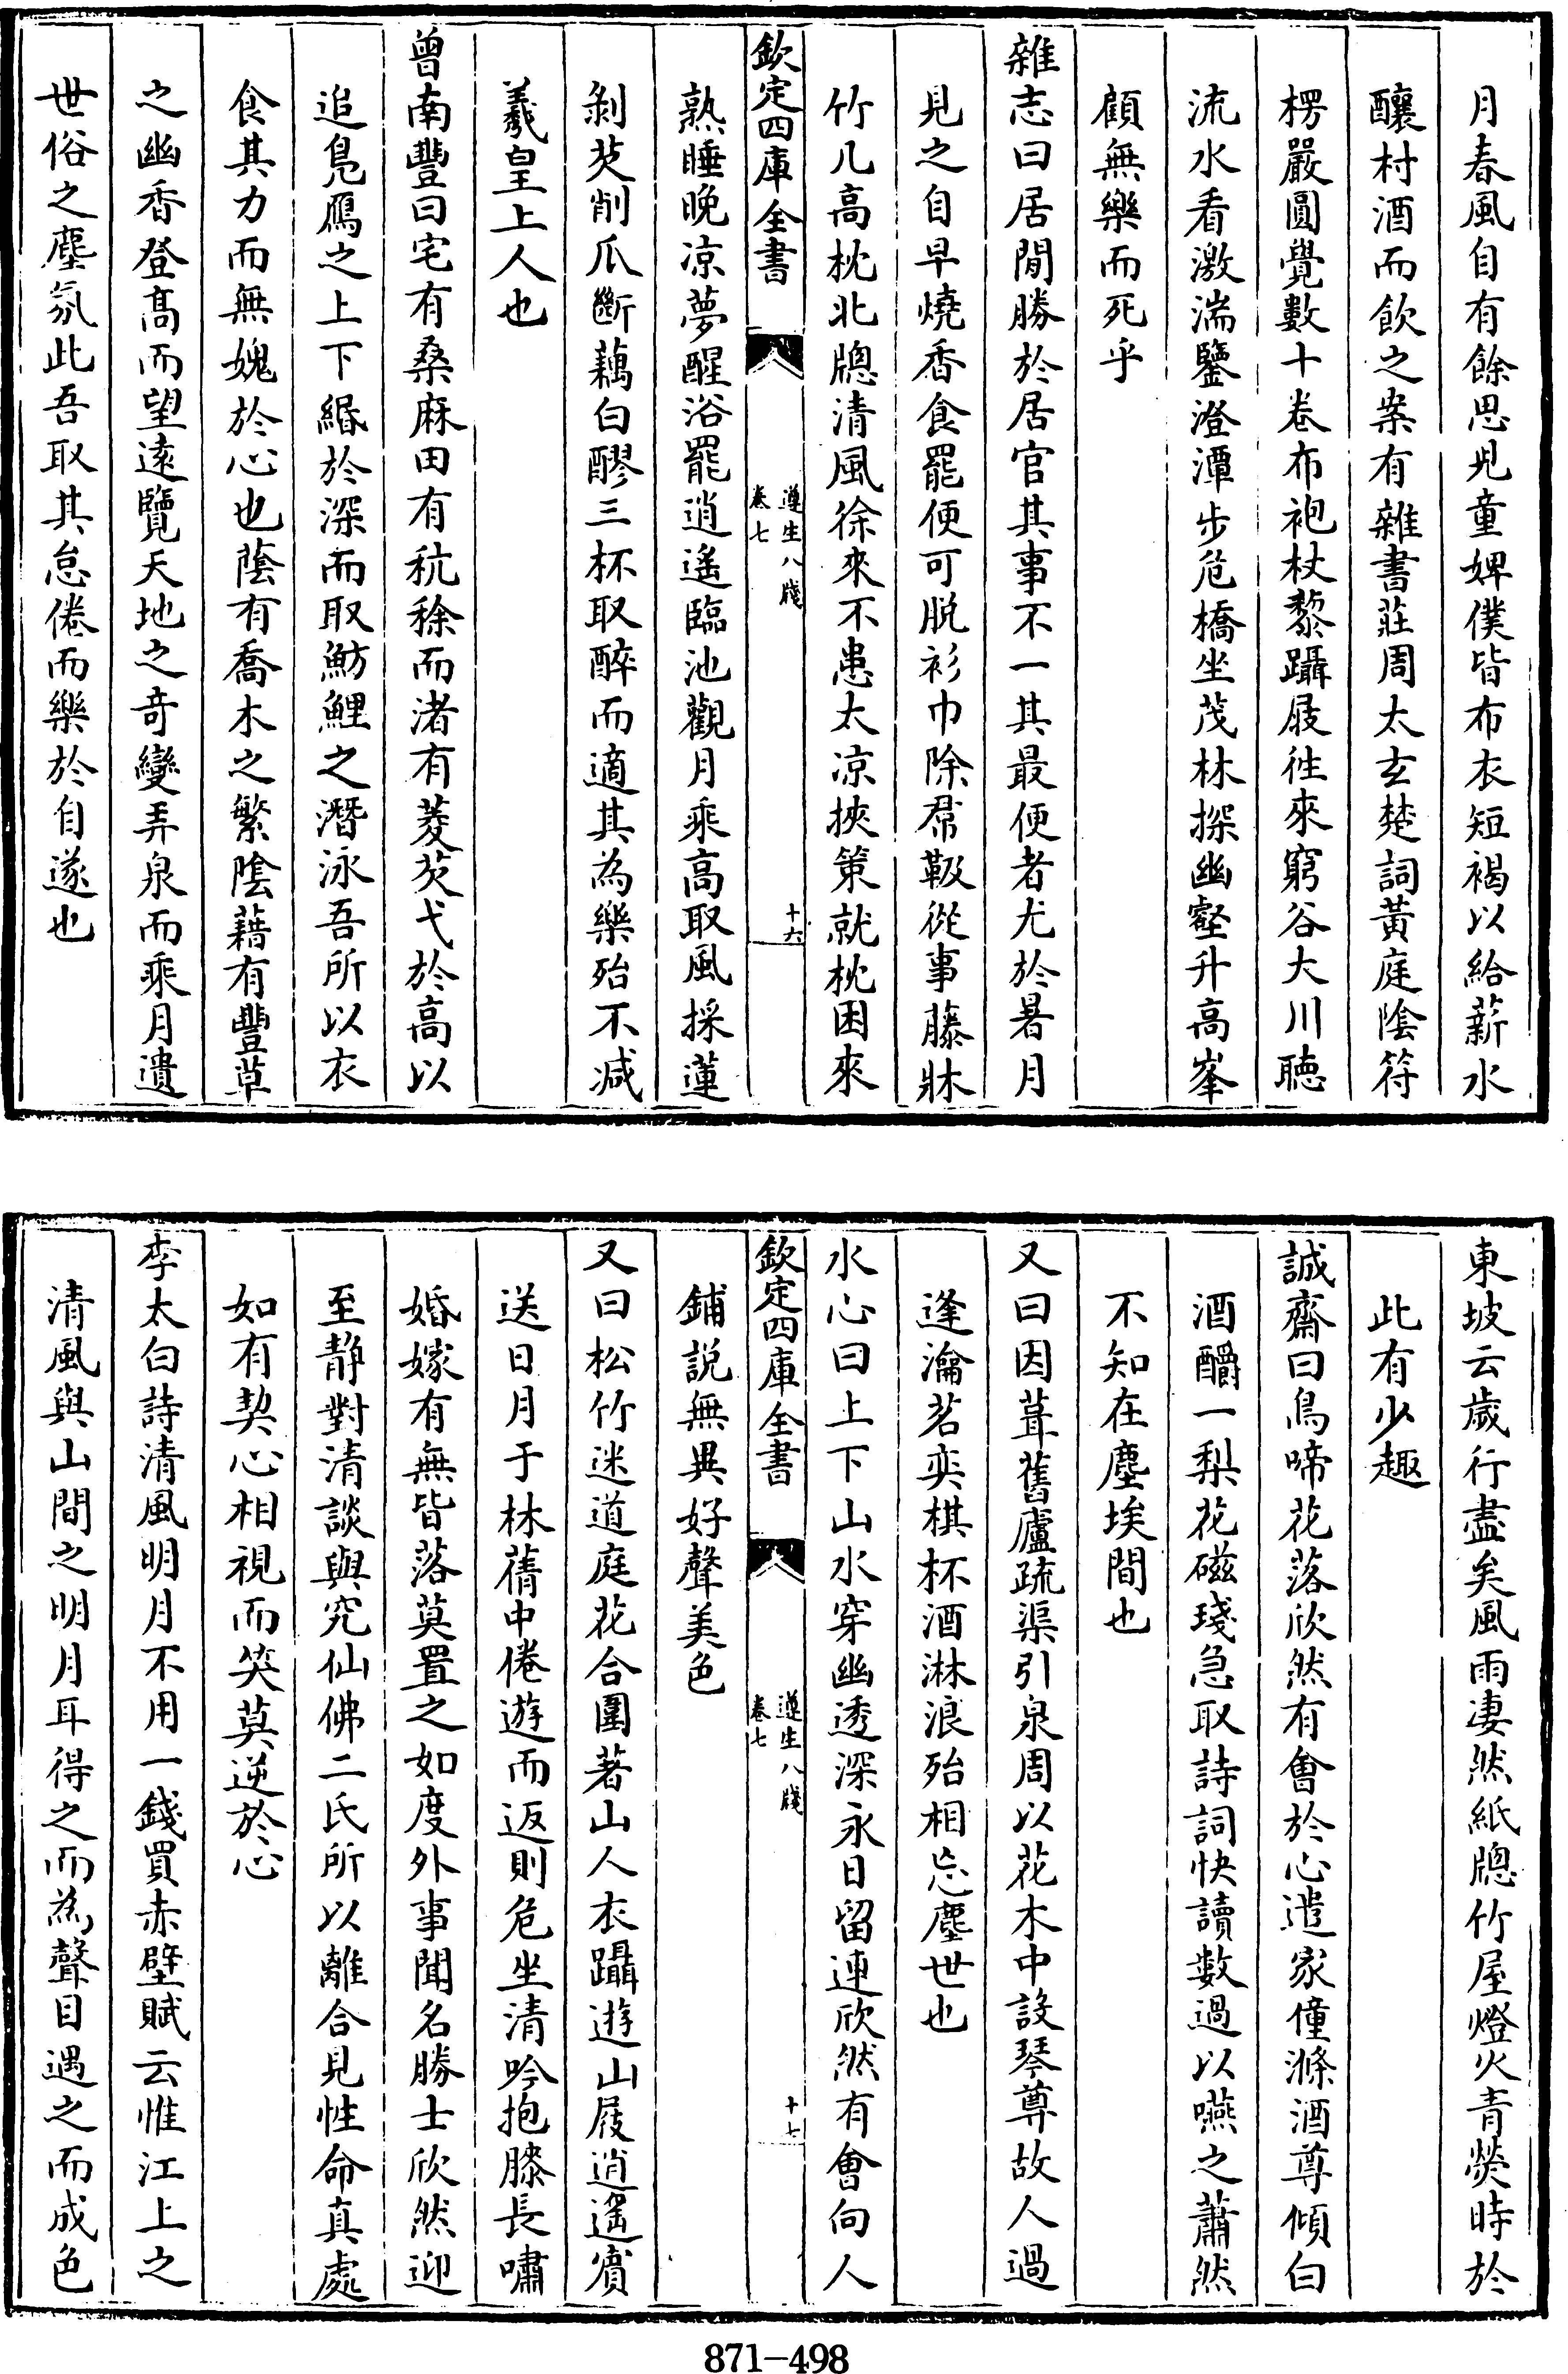 月春風自有餘思兒童婢僕皆布衣短褐以給薪水
釀村酒而飲之案有雜書莊周太玄楚詞黃庭陰符
楞嚴圓覺數十卷布袍杖藜躡屐徃來窮谷大川聴
流水看激湍鑒澄潭步危橋坐茂林探幽壑升高峯
顧無樂而死乎
雜志曰居閒勝於居官其事不一其最便者尤於暑月
見之自早燒香食罷便可脱衫巾除帬靸從事藤牀
竹几高枕北牕清風徐來不患太凉挾策就枕困來
欽定四庫全書
遵生八牋
卷七
十六
熟睡晚凉夢醒浴罷逍遙臨池觀月乘高取風採蓮
剝芡削瓜斷藕白醪三杯取醉而適其為樂殆不减
羲皇上人也
曾南豐曰宅有桑麻田有秔稌而渚有菱芡弋於高以
追鳧鴈之上下緡於深而取魴鯉之潛泳吾所以衣
食其力而無媿於心也蔭有喬木之繁陰藉有豐草
之幽香登髙而望逺覽天地之竒變弄泉而乘月遺
世俗之塵氛此吾取其怠倦而樂於自遂也
東坡云歲行盡矣風雨凄然紙牕竹屋燈火青熒時於
此有少趣
誠齋曰鳥啼花落欣然有會於心遣家僮滌酒尊傾白
酒釂一梨花磁琖急取詩詞快讀數過以嚥之蕭然
不知在塵埃間也
又曰因葺舊廬疏渠引泉周以花木中設琴尊故人過
逢瀹茗奕棋杯酒淋浪殆相忘塵世也
水心曰上下山水穿幽透深永日留連欣然有會向人
欽定四庫全書
遵生八牋
卷七
十七
鋪説無異好聲美色
又曰松竹迷道庭花合圍著山人衣躡遊山屐逍遙賓
送日月于林蒨中倦遊而返則危坐清吟抱膝長嘯
婚嫁有無皆落莫置之如度外事聞名勝士欣然迎
至静對清談與究仙佛二氏所以離合見性命真處
如有契心相視而笑莫逆於心
李太白詩清風明月不用一錢買赤壁賦云惟江上之
清風與山間之明月耳得之而為聲目遇之而成色
871-498